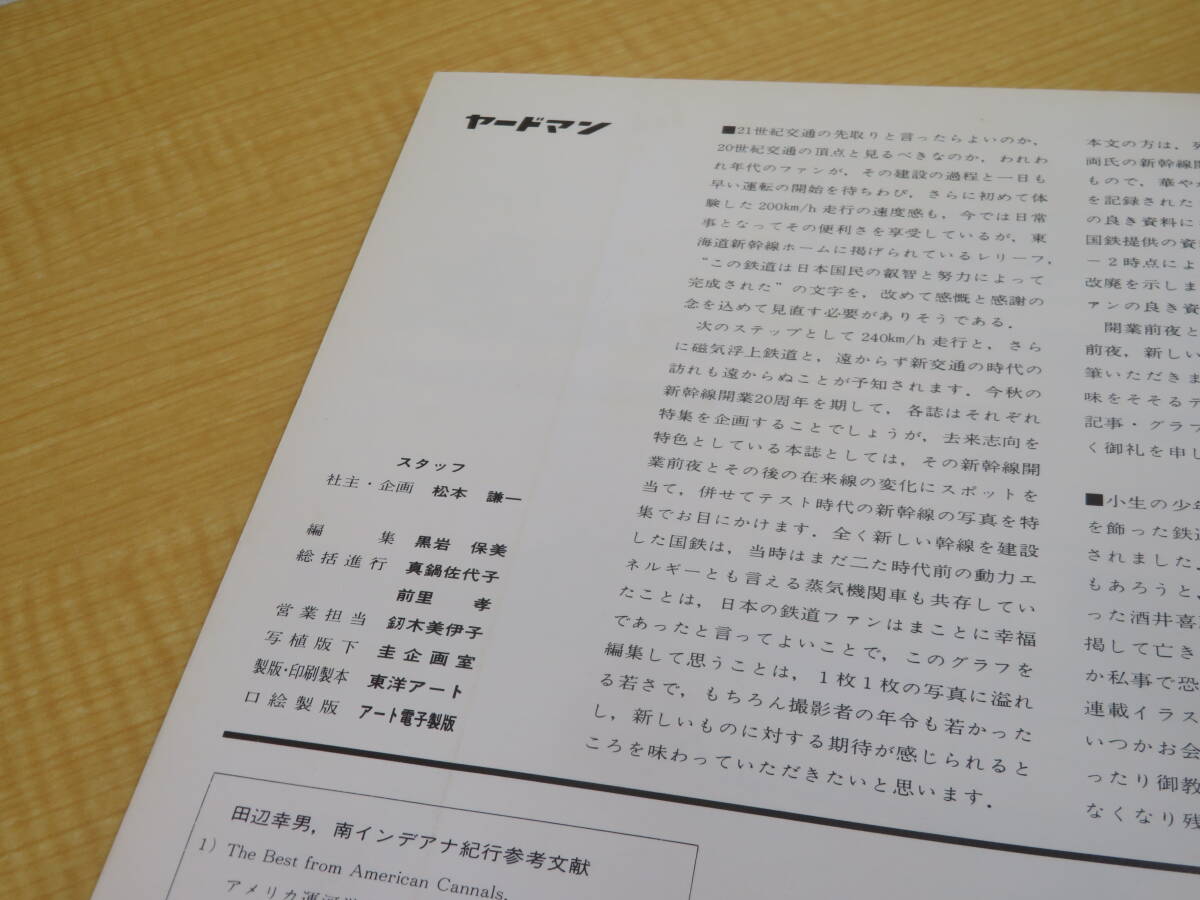 ヤードマン
スタッフ
社主・企画 松本 謙一
編 集 黒岩 保美
総括進行 真鍋佐代子
前里 孝
営業担当 釼木美伊子
写植版下 圭企画室
製版・印刷製本 東洋アート
口絵製版 アート電子製版
■21世紀交通の先取りと言ったらよいのか，
20世紀交通の頂点と見るべきなのか，われわ
れ年代のファンが，その建設の過程と一日も
早い運転の開始を待ちわび，さらに初めて体
験した200km/h走行の速度感も，今では日常
事となってその便利さを享受しているが，東
海道新幹線ホームに掲げられているレリーフ，
“この鉄道は日本国民の叡智と努力によって
完成された”の文字を，改めて感慨と感謝の
念を込めて見直す必要がありそうである．
次のステップとして240km/h走行と，さら
に磁気浮上鉄道と，遠からず新交通の時代の
訪れも遠からぬことが予知されます．今秋の
新幹線開業20周年を期して，各誌はそれぞれ
特集を企画することでしょうが，去来志向を
特色としている本誌としては，その新幹線開
業前夜とその後の在来線の変化にスポットを
当て，併せてテスト時代の新幹線の写真を特
集でお目にかけます．全く新しい幹線を建設
した国鉄は，当時はまだ二た時代前の動力エ
ネルギーとも言える蒸気機関車も共存してい
たことは，日本の鉄道ファンはまことに幸福
であったと言ってよいことで，このグラフを
編集して思うことは，1枚1枚の写真に溢れ
る若さで，もちろん撮影者の年令も若かった
し，新しいものに対する期待が感じられると
ころを味わっていただきたいと思います．
本文の方は，
両氏の新幹線開
もので，華や
を記録された
の良き資料に
国鉄提供の資
－2時点によ
改廃を示しま
ァンの良き資
開業前夜と
前夜，新しい
筆いただきま
味をそそるテ
記事・グラフ
く御礼を申し
■小生の少年
を飾った鉄道
されました．
もあろうと，
った酒井喜
掲して亡き
か私事で恐
連載イラス
いつかお会
ったり御教
なくなり残
田辺幸男，南インデアナ紀行参考文献
1）The Best from American Cannals,
アメリカ運河